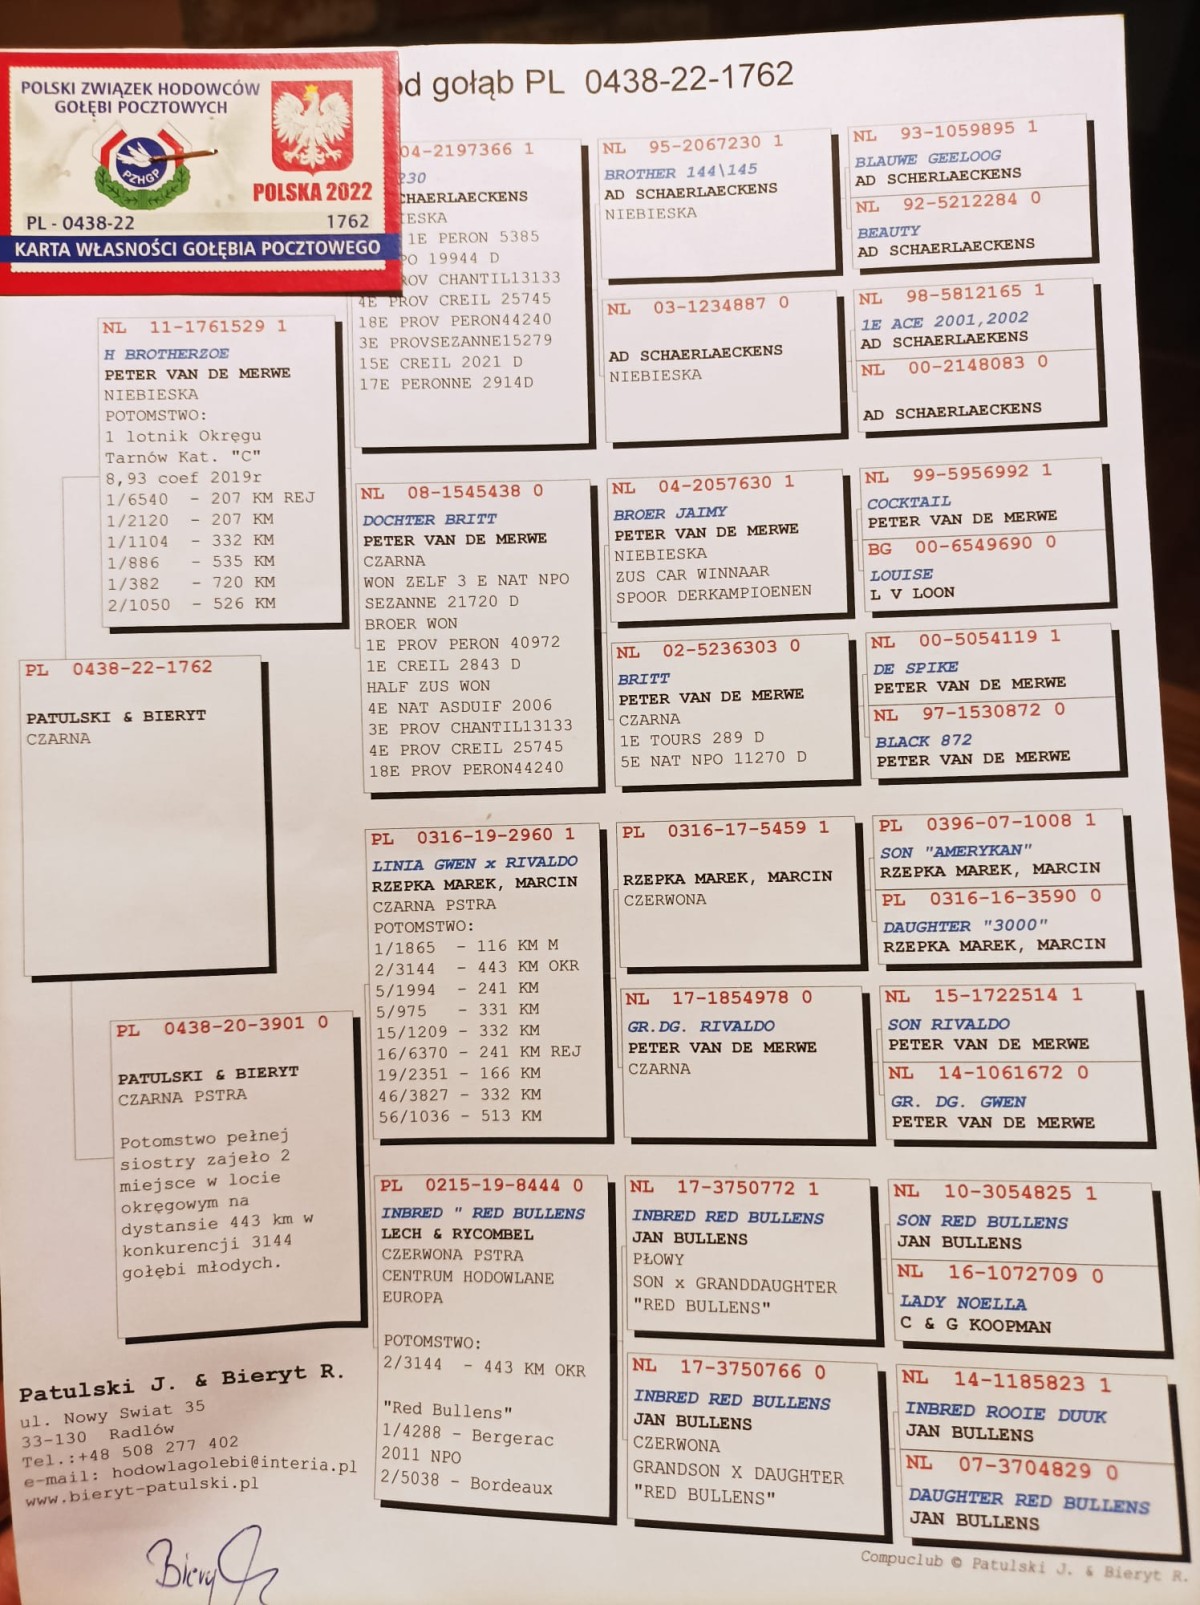 POLSKI ZWIĄZEK HODOWCÓW
GOŁĘBI POCZTOWYCH
PZHGP
POLSKA 2022
PL - 0438-22 1762
KARTA WŁASNOŚCI GOŁĘBIA POCZTOWEGO
gołąb PL 0438-22-1762
PL 0438-22-1762
PATULSKI & BIERYT
CZARNA
NL 11-1761529 1
H BROTHERZOE
PETER VAN DE MERWE
NIEBIESKA
POTOMSTWO:
1 lotnik Okręgu
Tarnów Kat. "C"
8,93 coef 2019r
1/6540 - 207 KM REJ
1/2120 - 207 KM
1/1104 - 332 KM
1/886 - 535 KM
1/382 - 720 KM
2/1050 - 526 KM
PL 0438-20-3901 0
PATULSKI & BIERYT
CZARNA PSTRA
Potomstwo pełnej
siostry zajeło 2
miejsce w locie
okręgowym na
dystansie 443 km w
konkurencji 3144
gołębi młodych.
04-2197366 1
230
CHAERLAECKENS
IESKA
1E PERON 5385
PO 19944 D
PROV CHANTIL13133
4E PROV CREIL 25745
18E PROV PERON44240
3E PROVSEZANNE15279
15E CREIL 2021 D
17E PERONNE 2914D
NL 08-1545438 0
DOCHTER BRITT
PETER VAN DE MERWE
CZARNA
WON ZELF 3 E NAT NPO
SEZANNE 21720 D
BROER WON
1E PROV PERON 40972
1E CREIL 2843 D
HALF ZUS WON
4E NAT ASDUIF 2006
3E PROV CHANTIL13133
4E PROV CREIL 25745
18E PROV PERON44240
PL 0316-19-2960 1
LINIA GWEN x RIVALDO
RZEPKA MAREK, MARCIN
CZARNA PSTRA
POTOMSTWO:
1/1865 - 116 KM M
2/3144 - 443 KM OKR
5/1994 - 241 KM
5/975 - 331 KM
15/1209 - 332 KM
16/6370 - 241 KM REJ
19/2351 - 166 KM
46/3827 - 332 KM
56/1036 - 513 KM
PL 0215-19-8444 0
INBRED " RED BULLENS
LECH & RYCOMBEL
CZERWONA PSTRA
CENTRUM HODOWLANE
EUROPA
POTOMSTWO:
2/3144 - 443 KM OKR
"Red Bullens"
1/4288 - Bergerac
2011 NPO
2/5038 - Bordeaux
NL 95-2067230 1
BROTHER 144\145
AD SCHAERLAECKENS
NIEBIESKA
NL 03-1234887 0
AD SCHAERLAECKENS
NIEBIESKA
NL 04-2057630 1
BROER JAIMY
PETER VAN DE MERWE
NIEBIESKA
ZUS CAR WINNAAR
SPOOR DERKAMPIOENEN
NL 02-5236303 0
BRITT
PETER VAN DE MERWE
CZARNA
1E TOURS 289 D
5E NAT NPO 11270 D
PL 0316-17-5459 1
RZEPKA MAREK, MARCIN
CZERWONA
NL 17-1854978 0
GR.DG. RIVALDO
PETER VAN DE MERWE
CZARNA
NL 17-3750772 1
INBRED RED BULLENS
JAN BULLENS
PŁOWY
SON x GRANDDAUGHTER
"RED BULLENS"
NL 17-3750766 0
INBRED RED BULLENS
JAN BULLENS
CZERWONA
GRANDSON X DAUGHTER
"RED BULLENS"
NL 93-1059895 1
BLAUWE GEELOOG
AD SCHERLAECKENS
NL 92-5212284 0
BEAUTY
AD SCHAERLAECKENS
NL 98-5812165 1
1E ACE 2001,2002
AD SCHAERLAEKENS
NL 00-2148083 0
AD SCHAERLAECKENS
NL 99-5956992 1
COCKTAIL
PETER VAN DE MERWE
BG 00-6549690 0
LOUISE
L V LOON
NL 00-5054119 1
DE SPIKE
PETER VAN DE MERWE
NL 97-1530872 0
BLACK 872
PETER VAN DE MERWE
PL 0396-07-1008 1
SON "AMERYKAN"
RZEPKA MAREK, MARCIN
PL 0316-16-3590 0
DAUGHTER "3000"
RZEPKA MAREK, MARCIN
NL 15-1722514 1
SON RIVALDO
PETER VAN DE MERWE
NL 14-1061672 0
GR. DG. GWEN
PETER VAN DE MERWE
NL 10-3054825 1
SON RED BULLENS
JAN BULLENS
NL 16-1072709 0
LADY NOELLA
C & G KOOPMAN
NL 14-1185823 1
INBRED ROOIE DUUK
JAN BULLENS
NL 07-3704829 0
DAUGHTER RED BULLENS
JAN BULLENS
Patulski J. & Bieryt R.
ul. Nowy Swiat 35
33-130 Radlów
Tel.:+48 508 277 402
e-mail: hodowlagolebi@interia.pl
www.bieryt-patulski.pl
Compuclub © Patulski J. & Bieryt R.